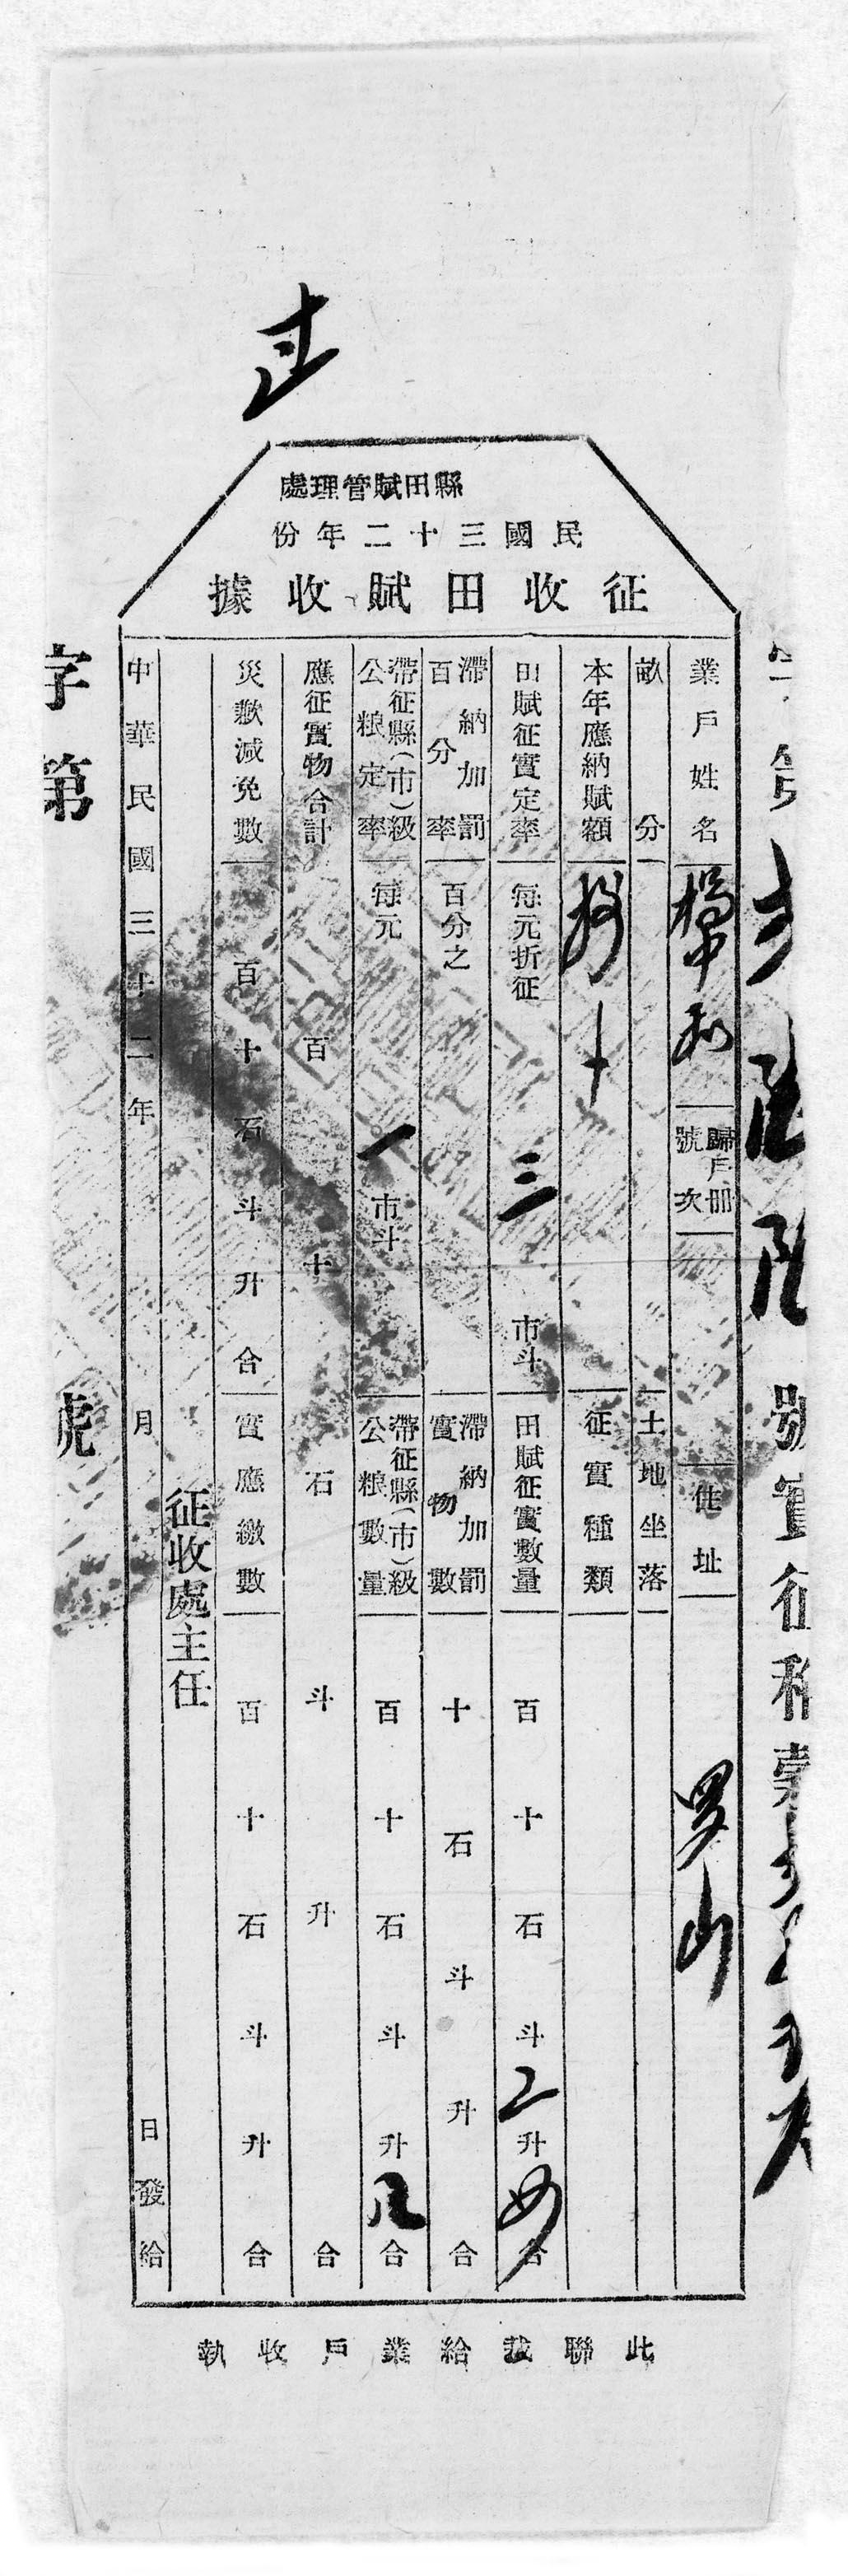 縣田賦管理處
民國三十二年份
征收田賦收據
字第 號實征稻
業戶姓名 歸戶冊號次 住址 罗山
畝分 土地坐落
本年應納賦額 征實種類
田賦征實定率 每元折征 三 市斗 田賦征實數量 百十石斗二升 合
滯納加罰百分率 百分之 滯納加罰實物數 十石斗升合
帶征縣(市)級公粮定率 每元 一 市斗 帶征縣(市)級公粮數量 百十石斗升 合
應征實物合計 百十石斗升合
災歉減免數 百十石斗升合 實應繳數 百十石斗升合
征收處主任
中華民國三十二年 月 日發給
字第 號
此聯裁給業戶收執